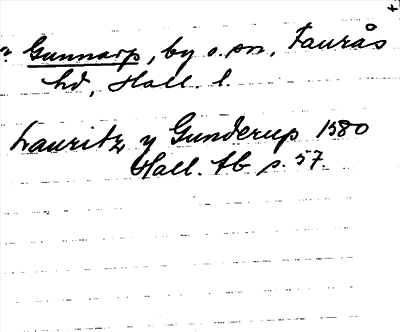 Gunnarp, by o. sn, Faurås
hd, Hall. l.
Lauritz y Gunderup 1580
Hall. tb p. 57.